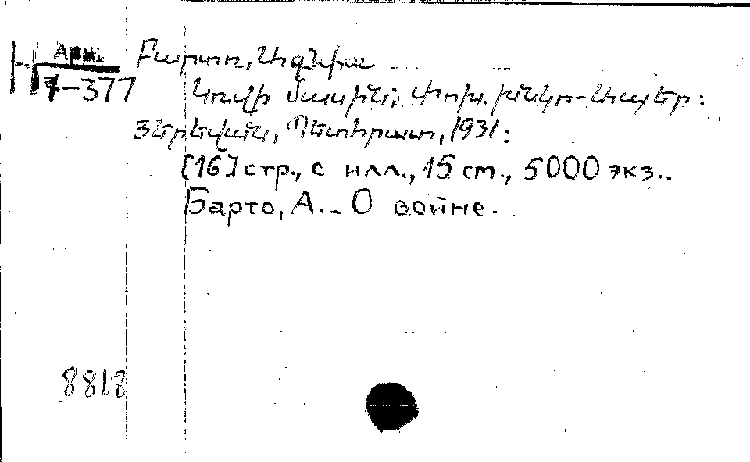 Арм.
7-377
Բարտո, Ագնիա
Կռվի մասին; Փոխ.
Յերեվան, Պետհրատ, 1931:
[16] стр., с илл., 15 см., 5000 экз..
Барто, А. - О войне.
8818